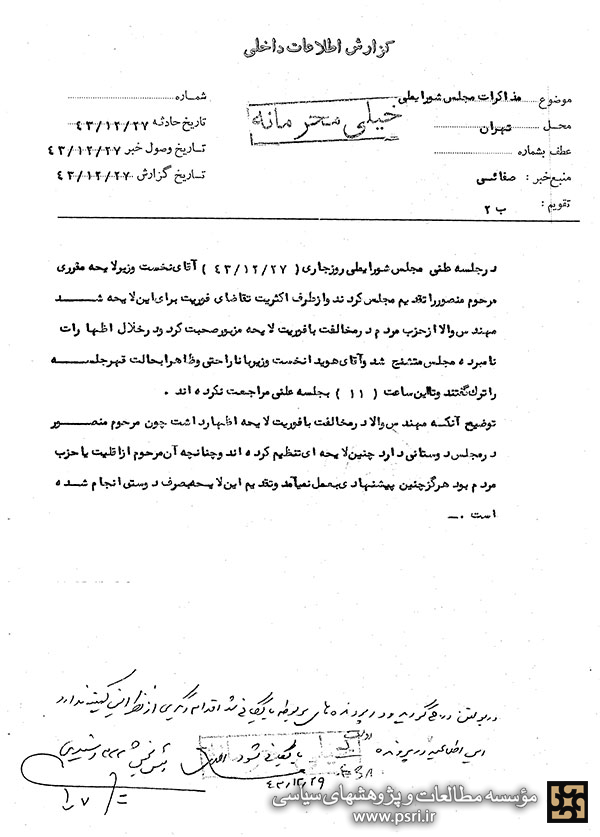 گزارش اطلاعات داخلی
موضوع مذاکرات مجلس شورایملی
محل تهران
عطف بشماره
منبع خبر : صفائی
تقویم : ب ۲
خیلی محرمانه
شماره
تاریخ حادثه ۴۳/۱۲/۲۷
تاریخ وصول خبر ۴۳/۱۲/۲۷
تاریخ گزارش ۴۳/۱۲/۲۷
در جلسه علنی مجلس شورایملی روز جاری ( ۴۳/۱۲/۲۷ ) آقای نخست وزیر لایحه مقرری
مرحوم منصور را تقدیم مجلس کردند و از طرف اکثریت تقاضای فوریت برای این لایحه شد
مهندس والا از حزب مردم در مخالفت با فوریت لایحه مزبور صحبت کرد و در خلال اظهارات
نامبرده مجلس متشنج شد و آقای هویدا نخست وزیر با ناراحتی و ظاهرا بحالت قهر جلسه
را ترک گفتند و تا این ساعت ( ۱۱ ) بجلسه علنی مراجعت نکرده اند .
توضیح آنکه مهندس والا در مخالفت با فوریت لایحه اظهار داشت چون مرحوم منصور
در مجلس دوستانی دارد چنین لایحه ای تنظیم کرده اند و چنانچه آن مرحوم از اقلیت یا حزب
مردم بود هرگز چنین پیشنهادی بعمل نمیآمد و تقدیم این لایحه بصرف دوستی انجام شده
است .ـ
در بولتن درج گردید و در پرونده های مربوطه بایگانی شد اقدام دیگری از نظر این کمیته ندارد
این اطلاعیه در پرونده
بایگانی شود
۴۳/۱۲/۲۹
مؤسسه مطالعات و پژوهشهای سیاسی
www.psri.ir